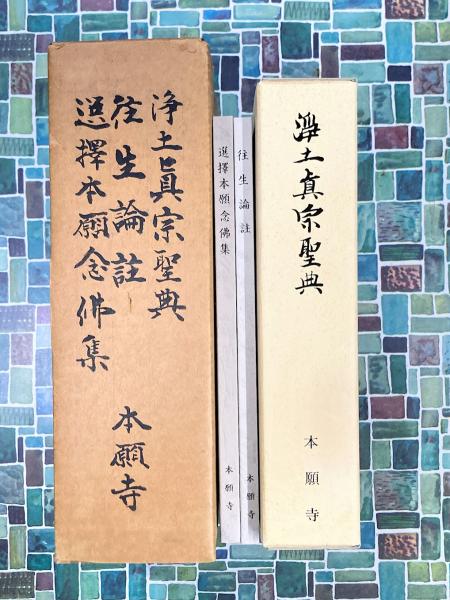 浄土眞宗聖典
往生論註
選擇本願念佛集
本願寺
選擇本願念佛集
本願寺
往生論註
本願寺
淨土真宗聖典
本願寺